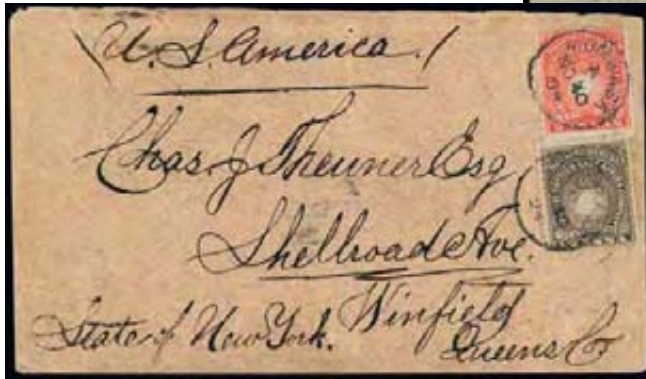 (U. S. America.)
Chas. J. Theuner Esq
Shellroad Ave.
Winfield
State of New York.
Queens Co